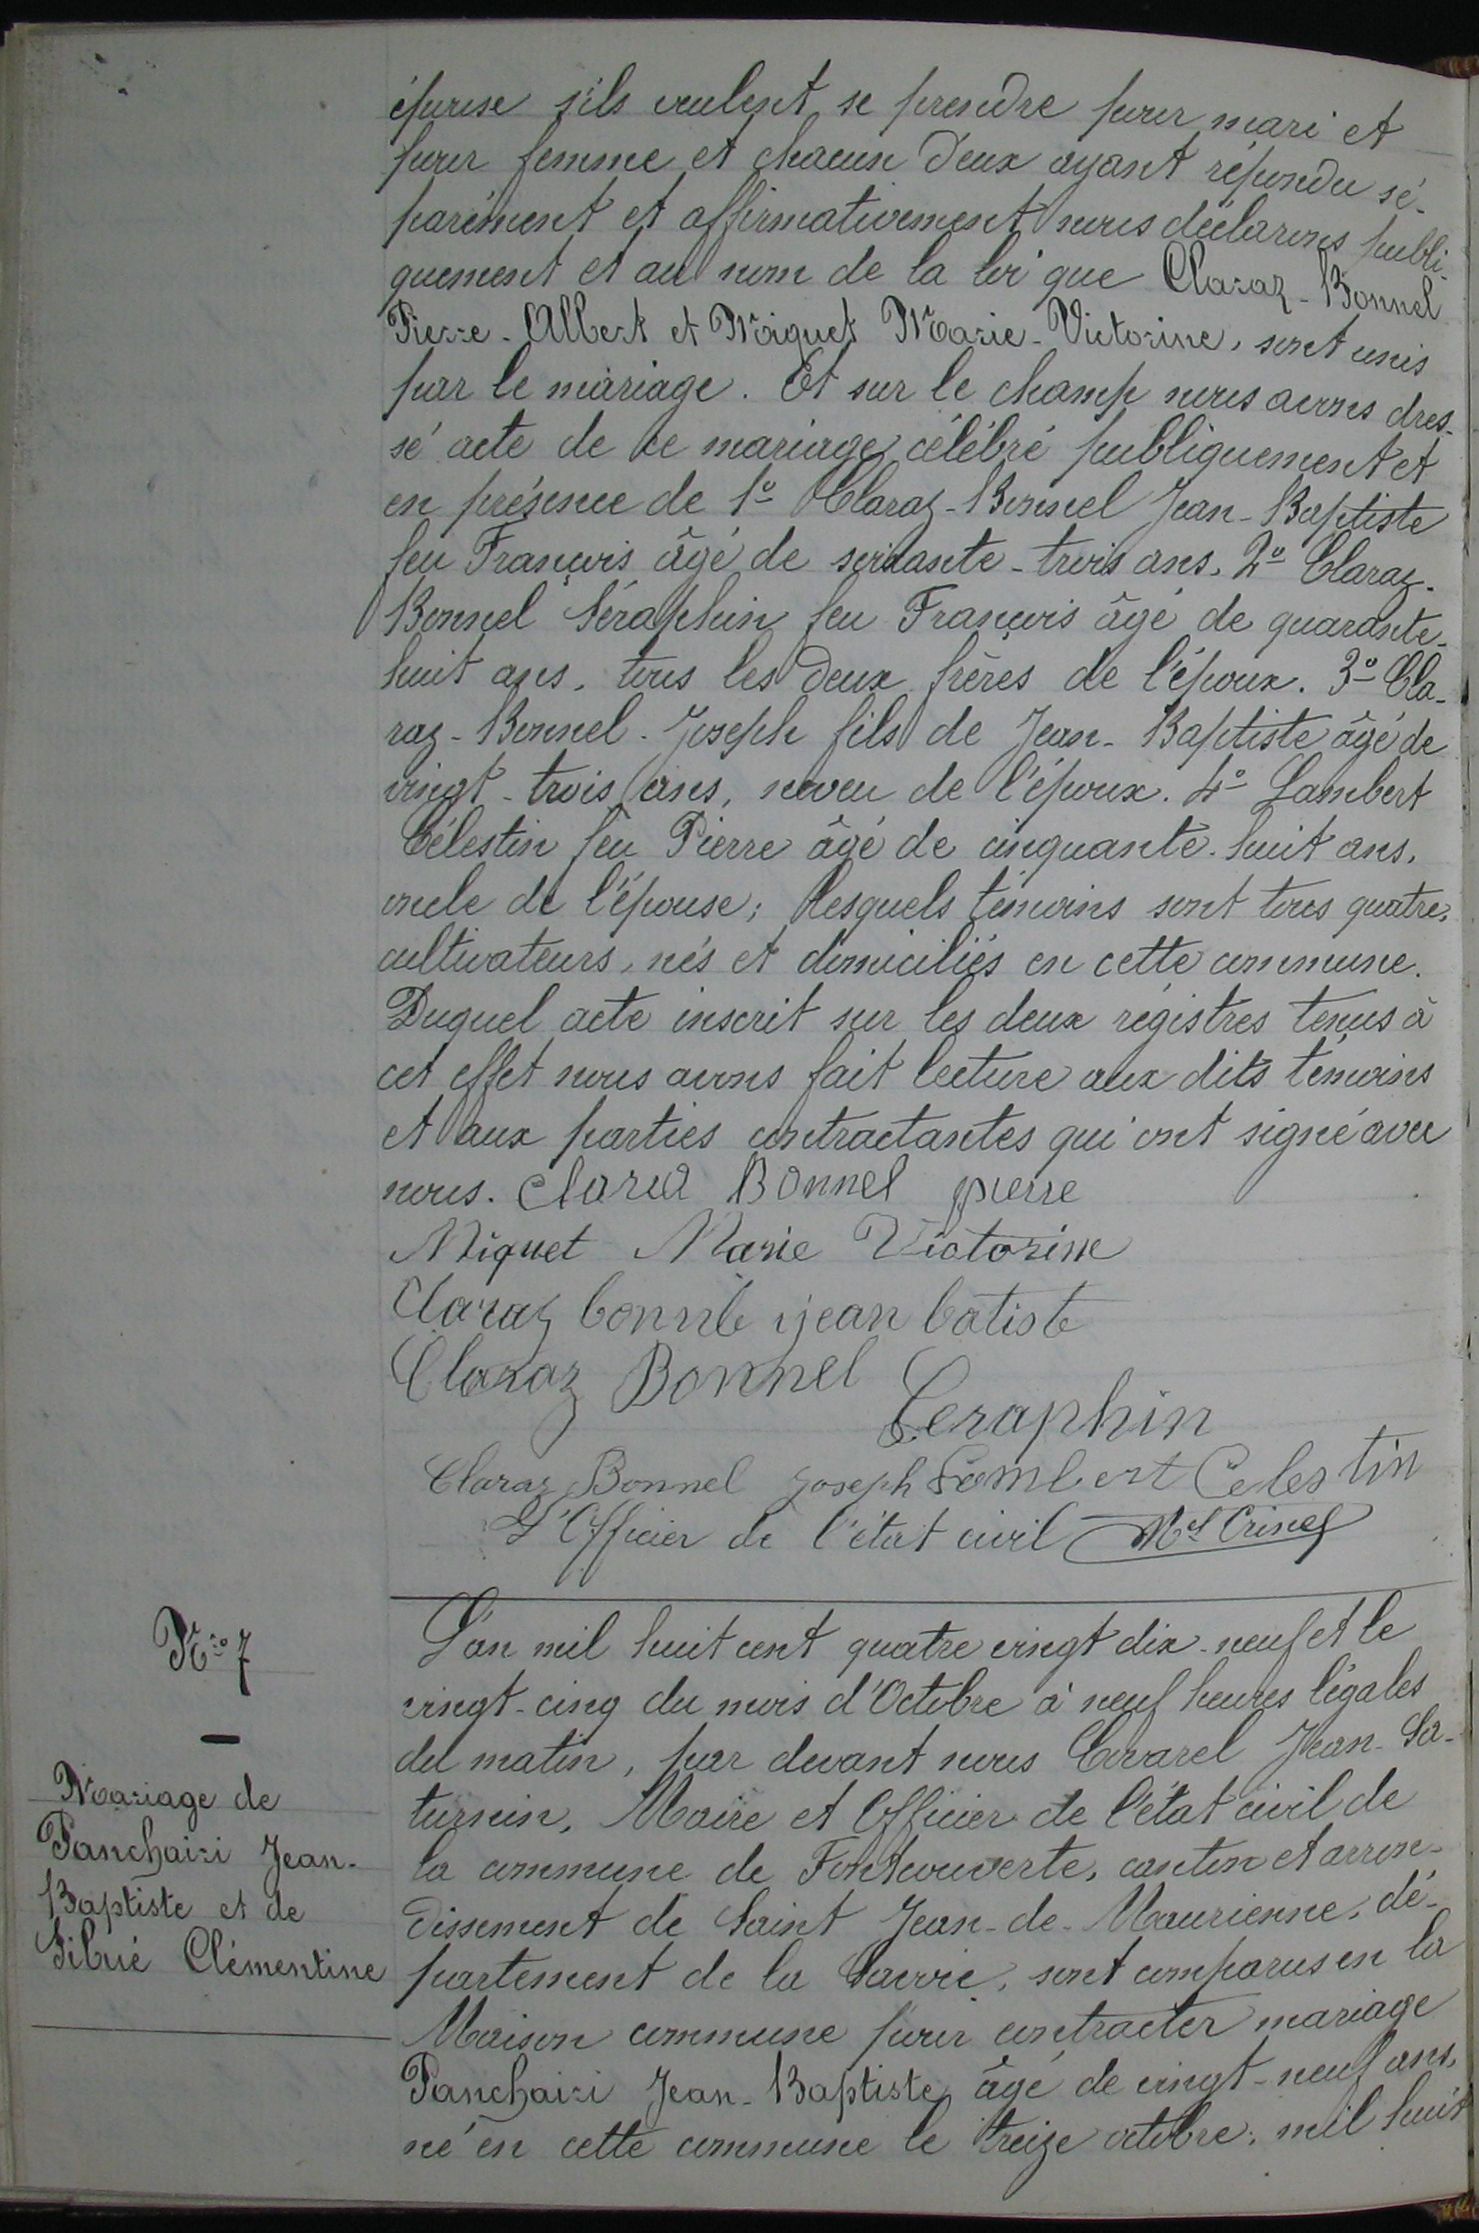 épouse s'ils veulent se prendre pour mari et
pour femme et chacun d'eux ayant répondu sé-
parément et affirmativement nous déclarons publi-
quement et au nom de la loi que Claraz-Bonnel
Pierre-Albert et Miquet Marie-Victorine, sont unis
par le mariage. Et sur le champ nous avons dres-
sé acte de ce mariage célébré publiquement et
en présence de 1º Claraz-Bonnel Jean-Baptiste
feu François âgé de soixante-trois ans. 2º Claraz-
Bonnel Séraphin feu François âgé de quarante-
huit ans, tous les deux frères de l'époux. 3º Cla-
raz-Bonnel Joseph fils de Jean-Baptiste âgé de
vingt-trois ans, neveu de l'époux. 4º Lambert
Célestin feu Pierre âgé de cinquante-huit ans,
oncle de l'épouse; lesquels témoins sont tous quatre,
cultivateurs, nés et domiciliés en cette commune.
Duquel acte inscrit sur les deux régistres tenus à
cet effet nous avons fait lecture aux dits témoins
et aux parties contractantes qui ont signé avec
nous. Claraz Bonnel pierre
Miquet Marie Victorine
Claraz bonnile jean batiste
Claraz Bonnel
Seraphin
Claraz Bonnel Joseph Lombert Celestin
L'Officier de l'état civil
Nro 7
Mariage de
Panchairi Jean-
Baptiste et de
Sibué Clémentine
L'an mil huit cent quatre vingt dix-neuf et le
vingt-cinq du mois d'Octobre à neuf heures légales
du matin, par devant nous Covarel Jean-Sa-
turnin, Maire et Officier de l'état civil de
la commune de Fontcouverte, canton et arron-
dissement de Saint Jean-de-Maurienne, dé-
partement de la Savoie, sont comparus en la
Maison commune pour contracter mariage
Panchairi Jean-Baptiste, âgé de vingt-neuf ans,
né en cette commune le treize octobre, mil huit